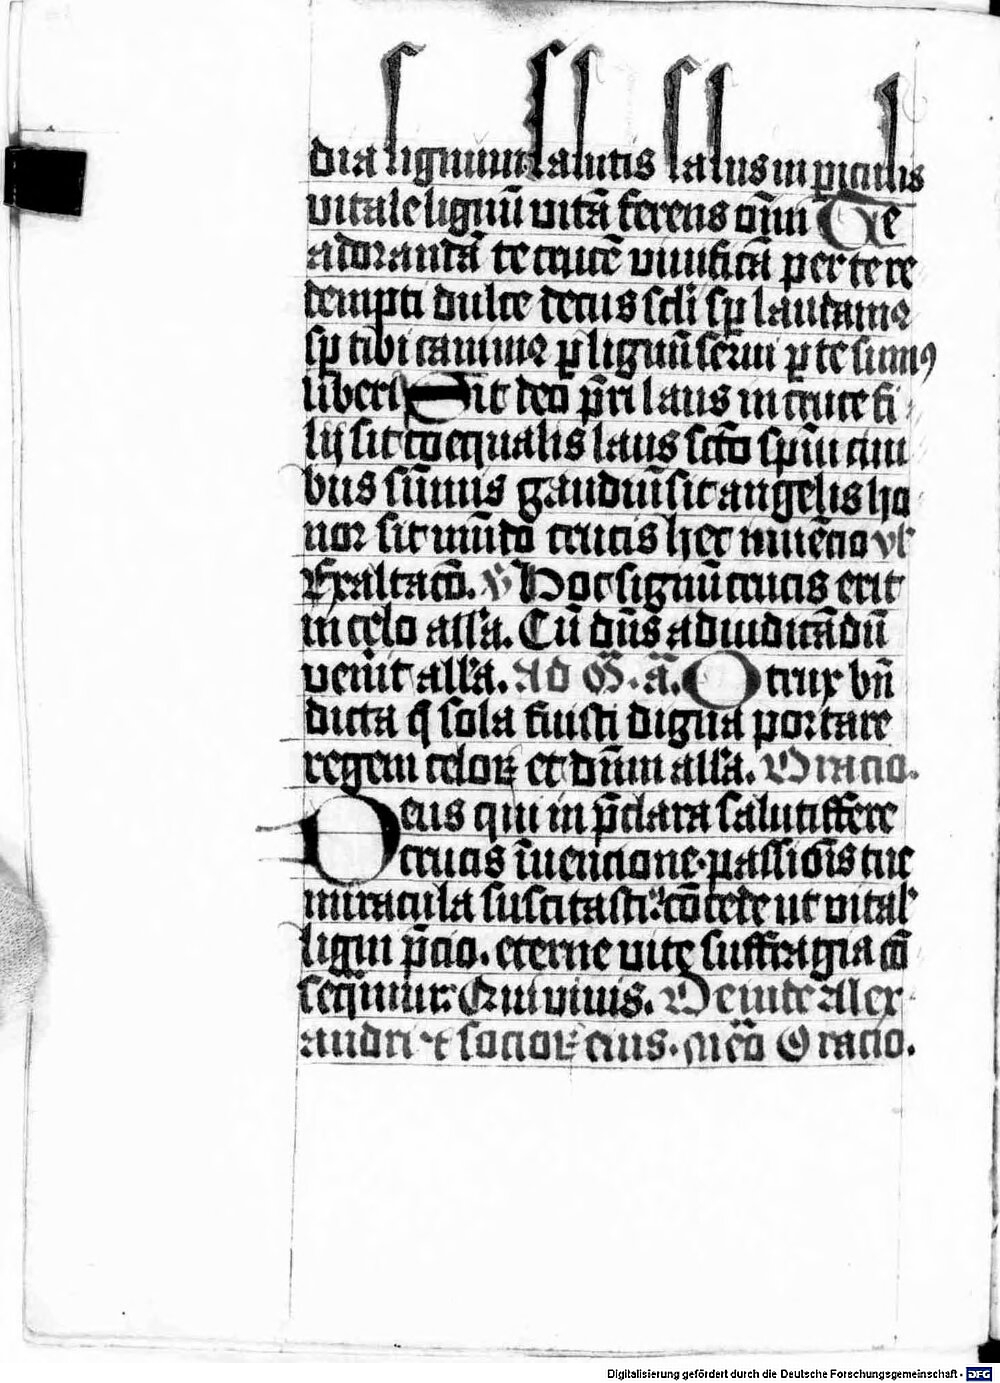 dia lignum salutis salus in piculis
vitale lignū vitā ferens oīm Te
adorandā te crucē viuificā per te re
dempti dulce decus scli sp laudamꝰ
sp tibi canimꝰ p lignū serui p te sumꝰ
liberi Sit deo pr̄i laus in cruce fi
lij sit coequalis laus scto spūi ciui
bus sūmis gaudiū sit angelis ho
nor sit mūdo crucis hec inuēcio vl
Exaltacō. V Hoc signū crucis erit
in celo all'a. Cū dn̄s ad iudicādū
venīt all'a. Ad M. a. O crux bn̄
dicta q̄ sola fuisti digna portare
regem celoꝝ et dn̄m all'a. Oracio.
Deus qui in p̄clara salutiffere
crucis īuencione passiōis tue
miracula suscitasti cōcede ut vital'
ligni p̄cio. eterne vite suffragia cō
seqmur. Qui viuis. Deinde Alex
andri et socioꝝ eius. Mēo Oracio.
Digitalisierung gefördert durch die Deutsche Forschungsgemeinschaft - DFG